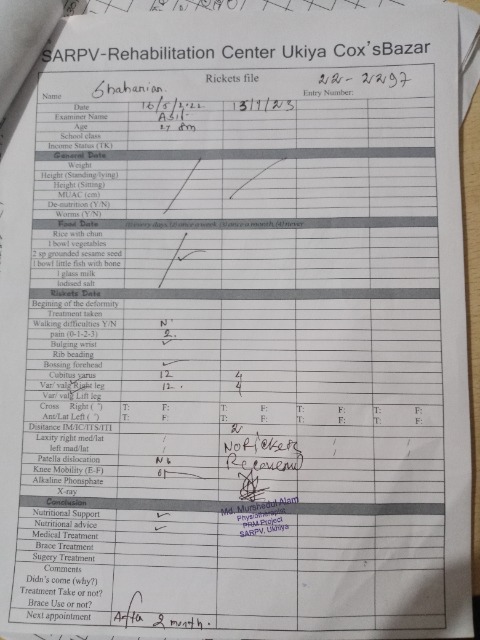 SARPV-Rehabilitation Center Ukiya Cox'sBazar
Rickets file
22-2297
Name
Entry Number:
Date 16/5/2022
Examiner Name Asif
Age 27
School class
Income Status (TK)
General Data
Weight
Height (Standing/lying)
Height (Sitting)
MUAC (cm)
De-nutrition (Y/N)
Worms (Y/N)
Food Data
Rice with chun
1 bowl vegetables
2 sp grounded sesame seed
1 bowl little fish with bone
1 glass milk
Iodised salt
Rickets Data
Begining of the deformity
Treatment taken
Walking difficulties Y/N N
pain (0-1-2-3) 2
Bulging wrist ✓
Rib beading
Bossing forehead ✓
Cubitus varus 12 4
Var/ valg Right leg 12 4
Var/ valg Left leg
Cross Right (°) T: F: T: F: T: F: T: F:
Ant/Lat Left (°) T: F: T: F: T: F: T: F:
Disitance IM/IC/ITS/ITI 2
Laxity right med/lat / No Rickets / /
left mad/lat / / /
Patella dislocation No Recovered
Knee Mobility (E-F)
Alkaline Phonsphate
X-ray
Conclusion
Md. Murshedul Alam
Physiotherapist
PRM Project
SARPV, Ukhiya
Nutritional Support ✓
Nutritional advice ✓
Medical Treatment
Brace Treatment
Sugery Treatment
Comments
Didn's come (why?)
Treatment Take or not?
Brace Use or not?
Next appointment After 2 month.